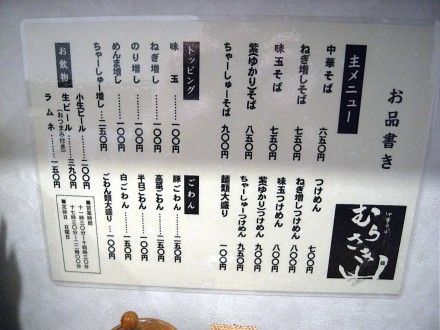 お品書き
中華そば
むらさき山
主メニュー
中華そば 六五〇円
ねぎ増しそば 七五〇円
味玉そば 七五〇円
紫(ゆかり)そば 八五〇円
ちゃーしゅーそば 九〇〇円
つけめん 七〇〇円
ねぎ増しつけめん 八〇〇円
味玉つけめん 八〇〇円
紫(ゆかり)つけめん 九〇〇円
ちゃーしゅーつけめん 九五〇円
麺類大盛り 一〇〇円
トッピング
味玉 一〇〇円
ねぎ増し 一〇〇円
のり増し 一〇〇円
めんま増し 一〇〇円
ちゃーしゅー増し 二五〇円
ごわん
豚ごわん 二五〇円
高菜ごわん 二五〇円
半白ごわん 一〇〇円
白ごわん 一五〇円
ごわん類大盛り 一〇〇円
お飲物
小生ビール 二〇〇円
生ビール 三九〇円
(おつまみ付き)
ラムネ 一五〇円
■営業時間
十一時三〇分〜十四時三〇分
十七時三〇分〜二十二時〇〇分
■定休日 日曜日